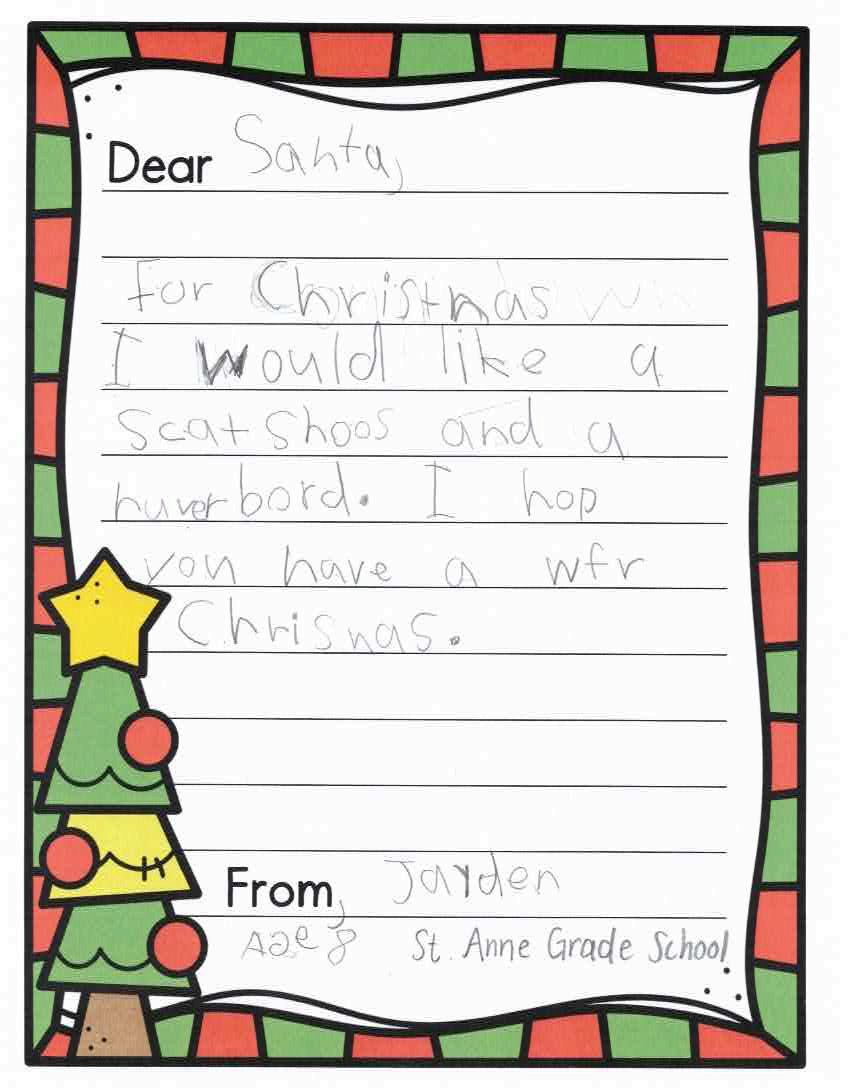 Dear Santa,
For Christnas
I would like a
scat shoos and a
huverbord. I hop
you have a wfr
Chrisnas.
From, Jayden
Age 8 St. Anne Grade School